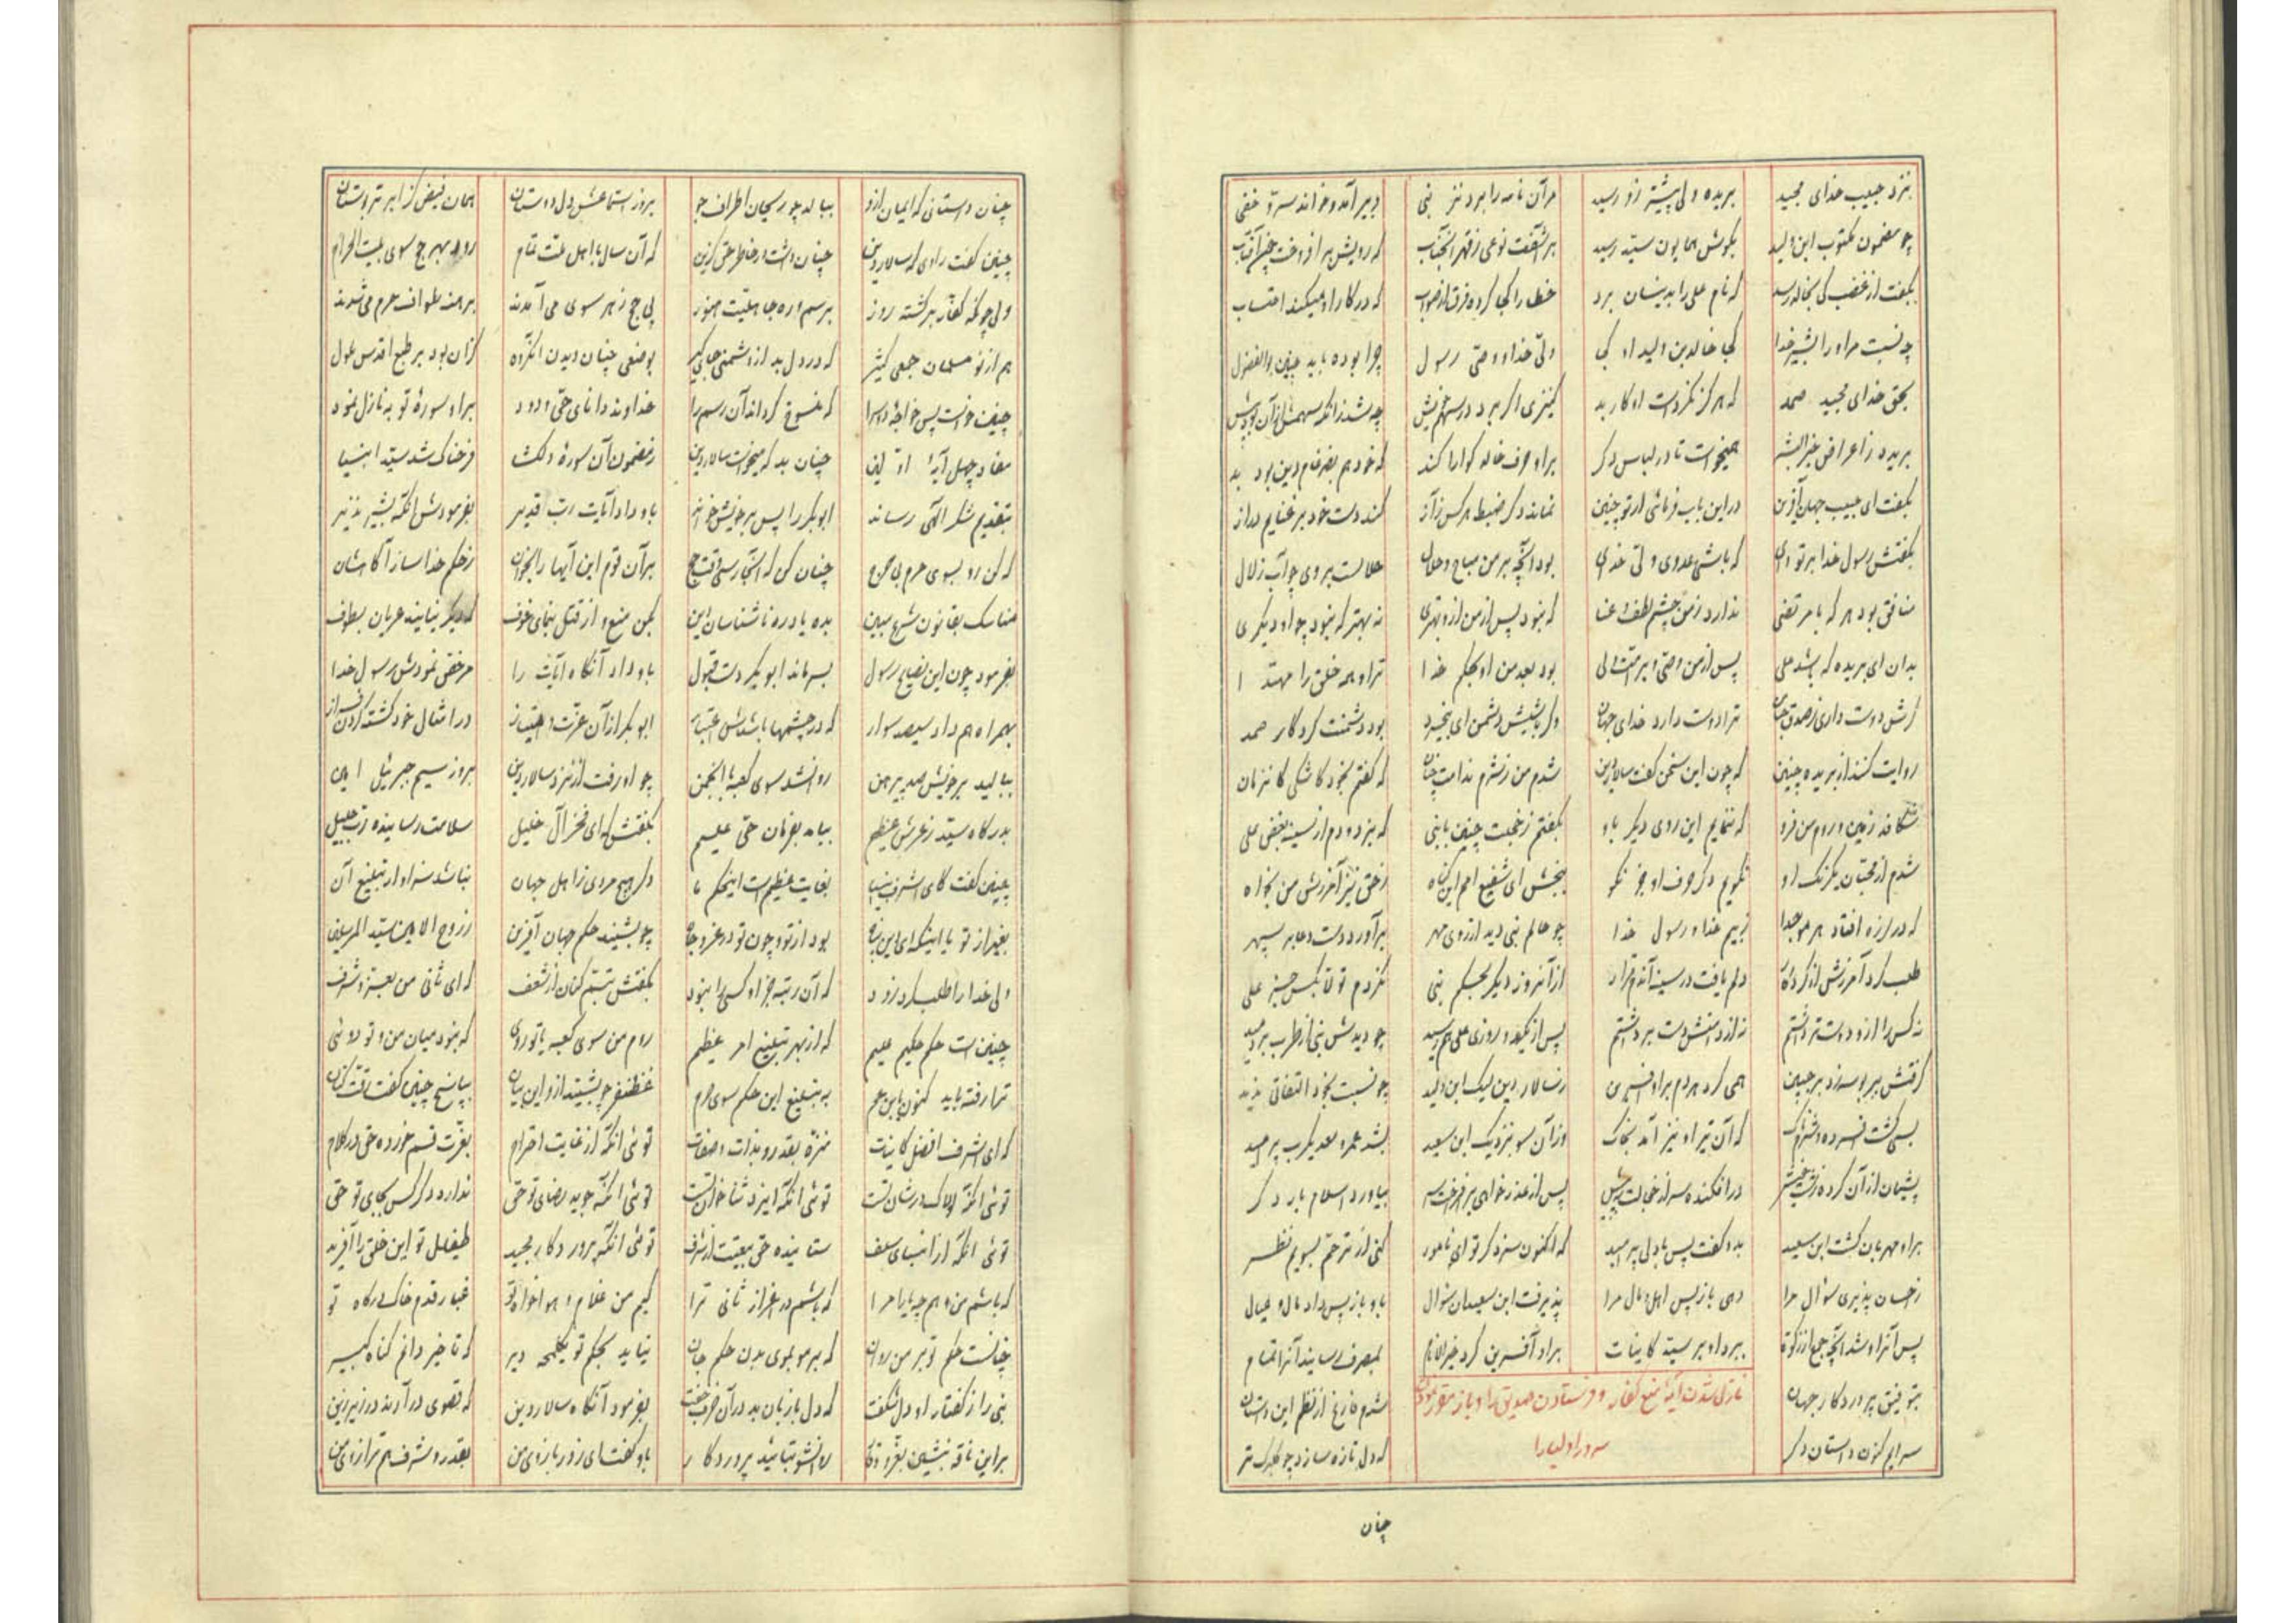 بنزد حبیب خدای مجید بریده ولی پیشتر زو رسید مرآن نامه را برد نزد نبی دبیر آمد و خواند سر و خفی
چو مضمون مکتوب ابن ولید بکوش همایون سید رسید برآشفت نوعی ز قهر آنجناب که رویش برافروخت چون آفتاب
بگفت از غضب کی بخالد رسد که نام علی را بدینسان برد خطا را کجا کرده فرق از صواب که در کار او میکند احتساب
چه نسبت مر او را بشیر خدا کجا خالد بن ولید او کجا ولی خدا و وصی رسول چرا بوده باید چنین بوالفضول
بحق خدای مجید صمد که هرگز نکردست او کار بد کنیزی اگر برد در سهم خویش چه شد زانکه سهمش از آن بود بیش
بریده ز اعراض خیر البشر همیخواست تا در لباس دگر برو حرف خالد گوارا کند که خود هم بد
بگفت ای حبیب جهان آفرین در این باب فرمائی ار تو چنین نماند دگر ضبط هرکس ز آز کند دست خود بر غنایم دراز
بگفتش رسول خدا بر تو وای که باشی عدوی ولی خدای بود آنچه بر من مباح و حلال حلالست بر وی چو آب زلال
منافق بود هر که با مرتضی ندارد ز من چشم لطف و عنا که نبود پس از من ازو بهتری نه بهتر که نبود چو او دیگری
بدان ای بریده که باشد علی پس از من وصی و بر امت ولی بود بعد من او بحکم خدا ترا و همه خلق را مقتدا
گرش دوست داری ز صدق جنان ترا دوست دارد خدای جهان وگر باشیش دشمن ای بیخرد بود دشمنت کردکار صمد
روایت کنند از بریده چنین که چون این سخن گفت سالار دین شدم من ز شرم ندامت چنان که گفتم بخود کاشکی کاین زمان
شکافد زمین و روم من فرو که ننمایم این روی دیگر باو بگفتم ز خجلت چنین با نبی که بزدودم از سینه بغض علی
شدم از محبان یکرنگ او نگویم دگر حرف او جز نکو ببخش ای شفیع امم این گناه ز حق نیز آمرزش من بخواه
که در لرزه افتاد هر مو جدا ز بیم خدا و رسول خدا چو حالم نبی دید از روی مهر برآورد دست دعا بر سپهر
طلب کرد آمرزش از کردگار دلم یافت در سینه آندم قرار از آنروز دیگر بحکم نبی نکردم تولا بکس جز علی
نه کس را ازو دوست تر داشتم نه از دامنش دست برداشتم پس از یکدو روزی علی هم رسید چو دیدش نبی از طرب بردمید
گرفتش ببر بوسه زد بر جبین همی کرد هردم برو آفرین ز سالار دین لیک ابن ولید چو نسبت بخود التفاتی ندید
بسی گشت افسرده و شرمناک که آن تیر او نیز آمد بخاک وز آن سو بنزدیک ابن سعید بشد عمرو معدیکرب پر امید
پشیمان از آن کرده زشت خویش درافکنده سر از خجالت به پیش پس از عذرخواهی برافروخت سر بیاورد اسلام بار دگر
برو مهربان گشت ابن سعید بدو گفت پس با دل پر امید که اکنون سزد گر تو ای نامور کنی از ترحم بسویم نظر
ز احسان پذیری سؤال مرا دهی باز پس اهل و مال مرا پذیرفت ابن سعید آن سؤال باو باز پس داد مال و عیال
پس آنرا و شد آنچه جمع از زکوة ببرد او بر سید کاینات برو آفرین کرد خیر الانام بمصرف رسانید آنرا تمام
بتوفیق پروردگار جهان شدم فارغ از نظم این داستان
نازل شدن آیهٔ منع کفار و فرستادن صدیق را و باز مقرر نمودن
سرایم کنون داستان دگر که دل تازه سازد چو گلبرگ تر
سرور اولیا را
چنان
چنان داستانی که ایمان ازو ببالد چو ریحان از اطراف جو بروز استماعش دل دوستان همان فیض کز ابر تر بوستان
چنین گفت راوی که سالار دین چنان داشت در خاطر حق گزین که آن سال با اهل ملت تمام رود بهر حج سوی بیت الحرام
ولی چونکه کفار برگشته روز برسم و ره جاهلیت هنوز پی حج ز هر سوی می آمدند برهنه طواف حرم می شدند
هم از نو مسلمان جمعی کثیر که در دل بد از دشمنی جایگیر بوضعی چنان دیدن آنگروه گران بود بر طبع اقدس
چنین خواست پس خواجه دوسرا که منسوخ گرداند آن رسم را خداوند دانای حی ودود برو سوره توبه نازل نمود
مفاد چهل آیهٔ اولین چنان بد که میخواست سالار دین ز مضمون آن سوره دلگشا فرحناک شد سید انبیا
بتقدیم شکر الهی رساند ابوبکر را پس بر خویش خواند باو داد آیات رب قدیر بفرمودش آنگه بشیر نذیر
که کن رو بسوی حرم چنان کن که آنجا رسی وقت حج برآن قوم این آیها را بخوان ز حکم خدا ساز آگاهشان
مناسک بقانون شرع مبین بده یاد ره ناشناسان دین بکن منع و از قتل بنمای خوف که دیگر نیایند عریان بطوف
بفرمود چون این نصایح رسول بسر ماند ابوبکر دست قبول باو داد آنگاه آیات را مرخص نمودش رسول خدا
بهمراه هم داد سیصد سوار که در چشمها باشدش اعتبار ابوبکر از آن عزت و امتیاز در امثال خود گشته گردن فراز
ببالید بر خویش صد پیرهن روان شد سوی کعبه با انجمن چو او رفت از نزد سالار دین بروز سیم جبرئیل امین
بدرگاه سید ز عرش عظیم بیامد بفرمان حق علیم بگفتش که ای فخر آل خلیل سلامت رساننده رب جلیل
چنین گفت کای اشرف انبیا بغایت عظیم است این حکم ما دگر هیچ مردی ز اهل جهان نباشد سزاوار تبلیغ آن
بغیر از تو یا اینکه ای دین پناه بود از تو و چون تو در عز و جاه چو بشنید حکم جهان آفرین ز روح الامین سید المرسلین
ولی خدا را طلب کرد زود که آن رتبه جز او کسی را نبود بگفتش تبسم کنان از شعف که ای ثانی من بعز و شرف
چنین است حکم حکیم علیم که از بهر تبلیغ امر عظیم روم من سوی کعبه یا تو روی که نبود میان من و تو دوئی
ترا رفته باید کنون یابن عم به تبلیغ این حکم سوی حرم غضنفر چو بشنید ازو این بیان بپاسخ چنین گفت
که ای اشرف افضل کاینات منزه بقدر و بذات و صفات توئی آنکه از غایت احترام بعزت قسم خورده حق در کلام
توئی آنکه لولاک در شان تست توئی آنکه ایزد ثنا خوان تست توئی آنکه جوید رضای تو حق ندارد دگر کس بجای تو حق
توئی آنکه از انبیای سلف ستاننده حق بیعتت از شرف توئی آنکه پروردگار مجید طفیل تو این خلق را آفرید
که باشم من و هم چه یارا مرا که باشم در اعزاز ثانی ترا کیم من غلام و هواخواه تو غبار قدم خاک درگاه تو
چنانست حکم تو بر من روان که بر مو بموی بدن حکم جان نیاید بحکم تو یکلمحه دیر که تاخیر دانم گناه کبیر
نبی را ز گفتار او دل شگفت که دل با زبان بد در آن حرف جفت بفرمود آنگاه سالار دین که قصوی درآرند در زیر زین
باو گفت ای زور بازوی من بقدر و شرف هم ترازوی من براین ناقه بنشین بعز و وقار روانشو بتائید پروردگار